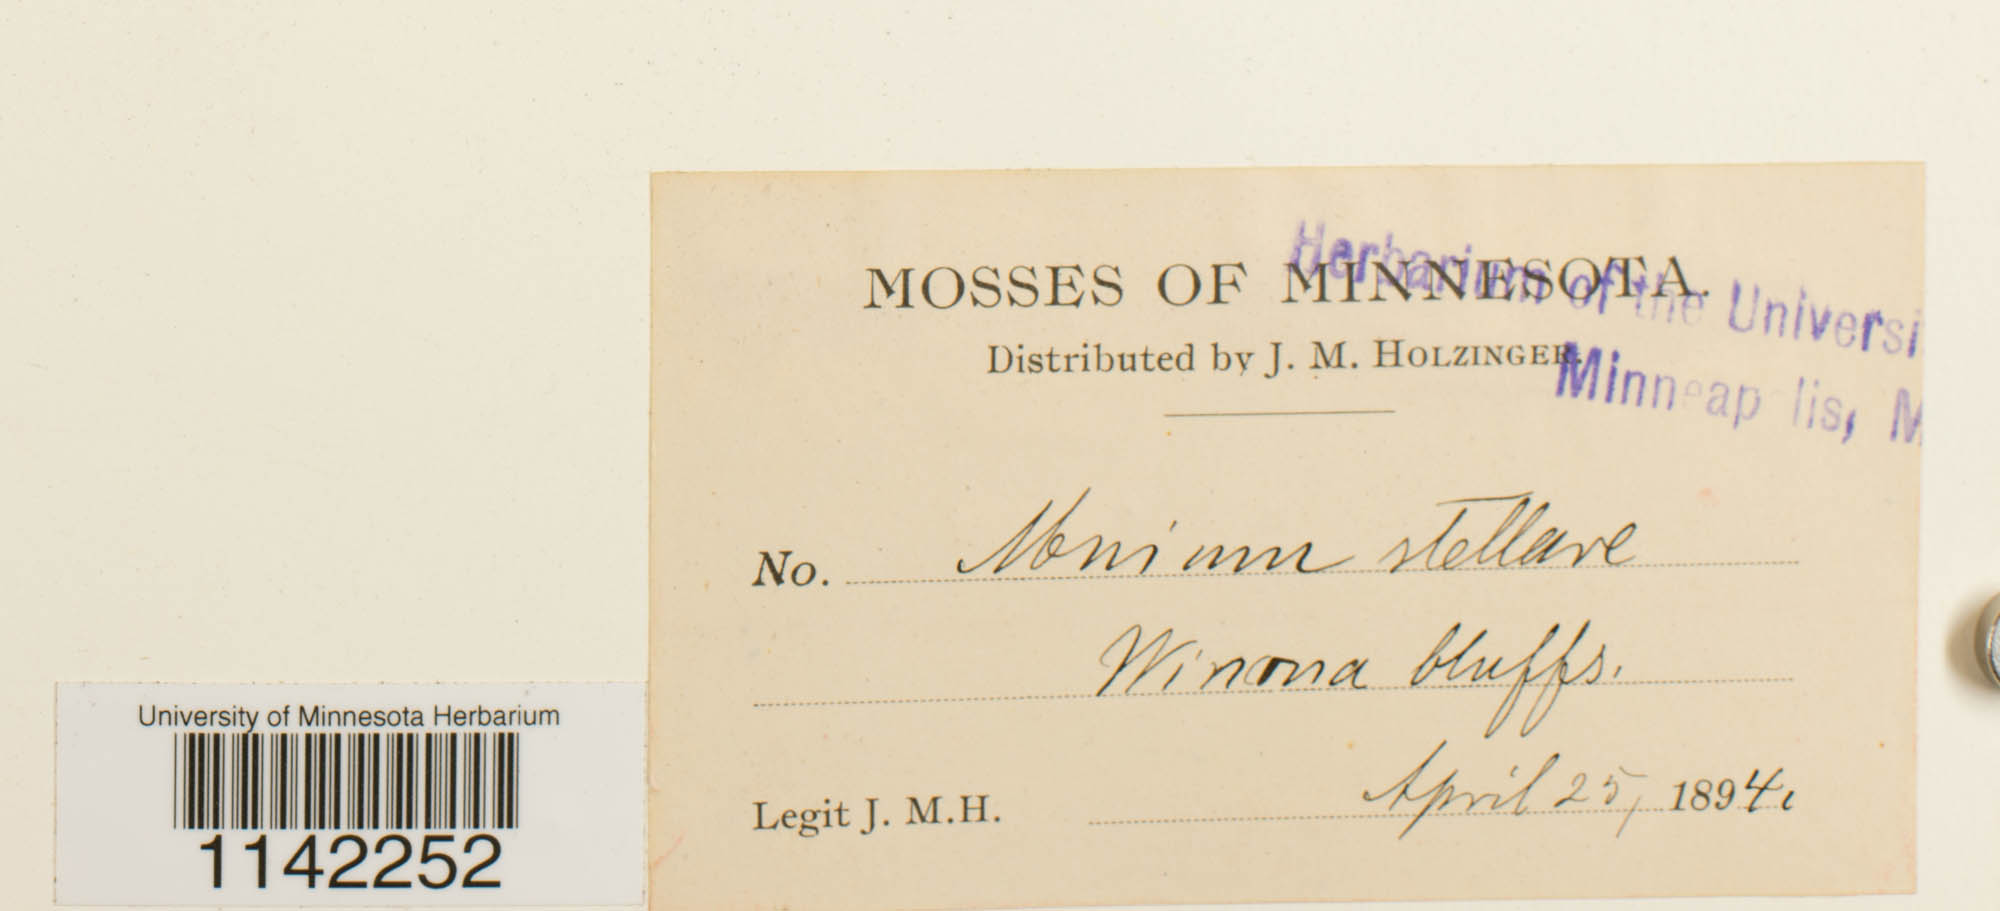 MOSSES OF MINNESOTA.
Herbarium of the Universi
Distributed by J. M. HOLZINGER.
Minneap lis, M
No. Mnium stellare
Winona bluffs.
Legit J. M.H. April 25, 1894.
University of Minnesota Herbarium
1142252